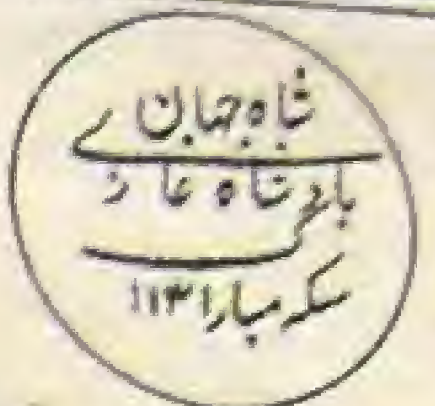 شاہ جہان
باد شاہ غاز
سکہ مبار ۱۱۳۱